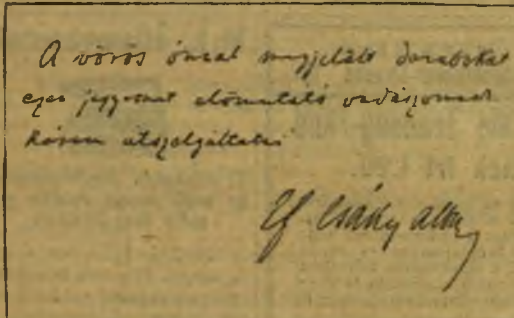 A vörös ónnal megjelölt darabokat
ezen jegyemet előmutató vadászomnak
kérem átszolgáltatni
Gf Csáky